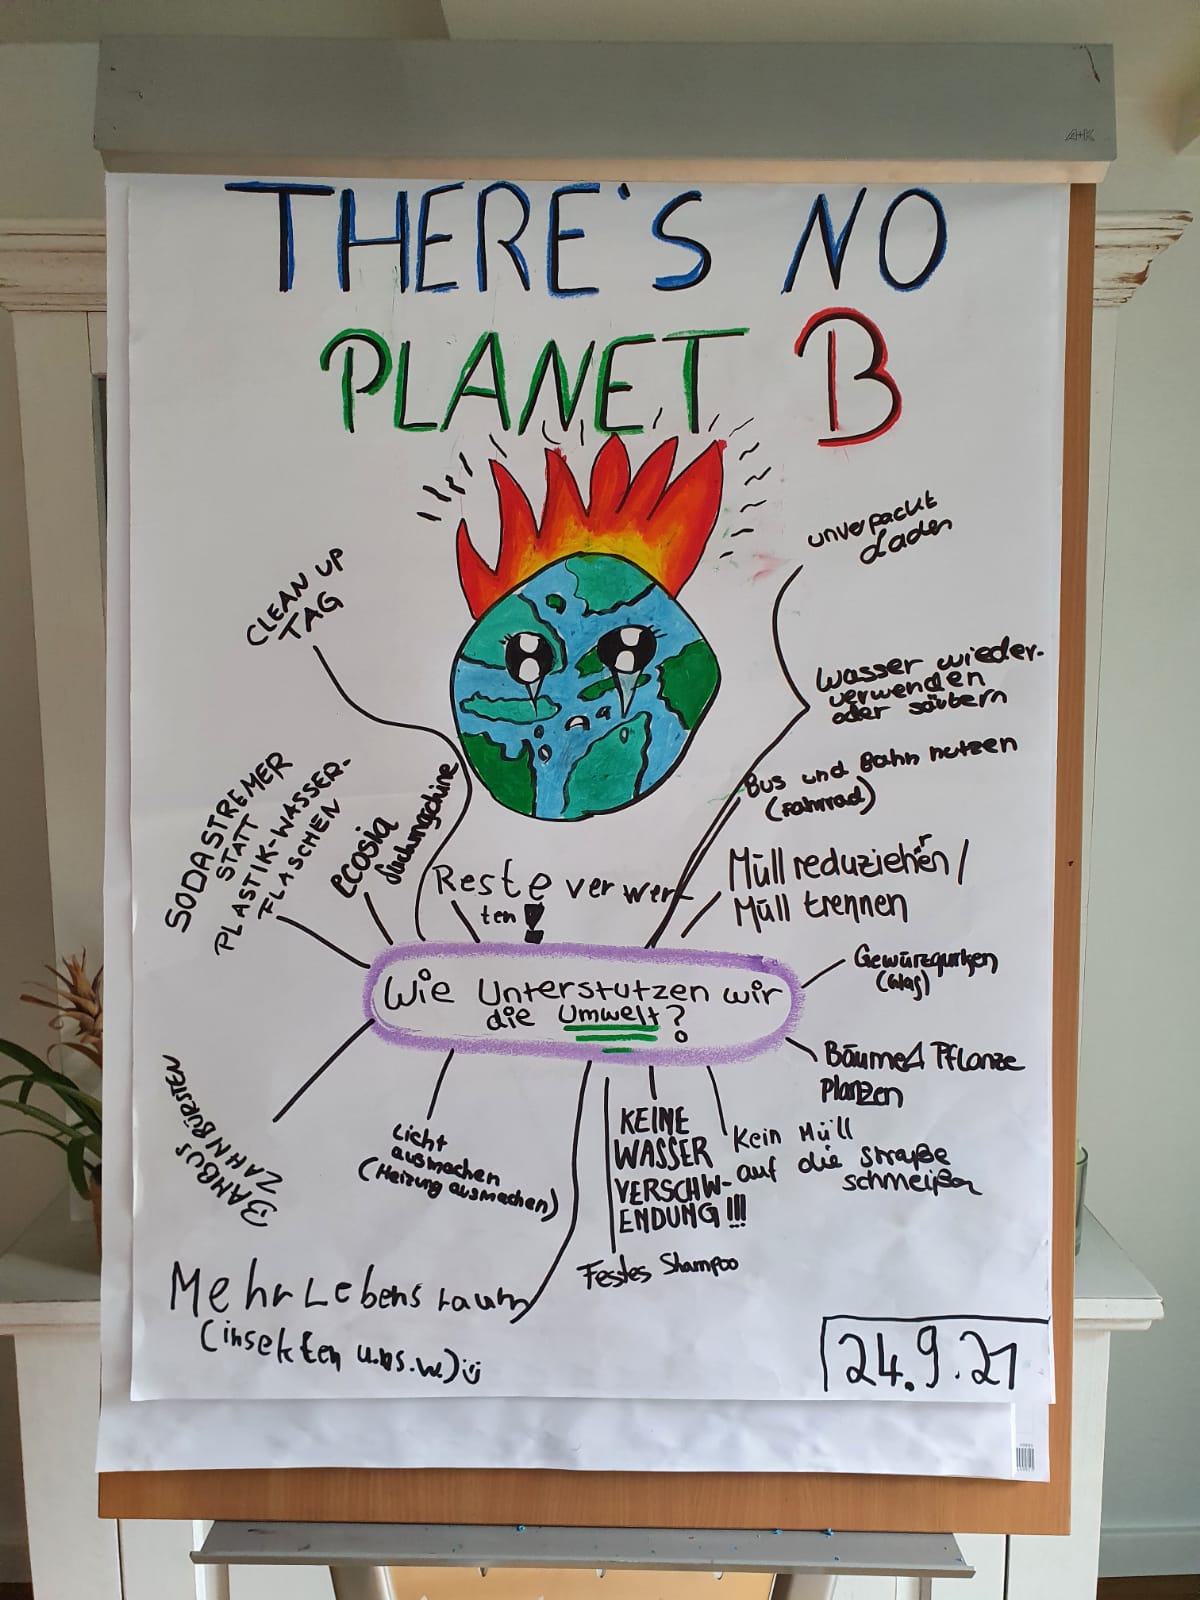 A+K
THERE'S NO
PLANET B
unverpackt
Laden
CLEAN UP
TAG
Wasser wieder-
verwenden
oder säubern
Bus und Bahn nutzen
(Fahrrad)
SODASTREMER
STATT
PLASTIK-WASSER-
FLASCHEN
ecosia
Suchmaschine
Reste verwer-
ten!
Müll reduziehren/
Müll trennen
Gewürzgurken
(Glas)
Wie Unterstutzen wir
die Umwelt?
Bäume Pflanze
planzen
BAMBUS
ZAHNBÜRSTEN
Licht
ausmachen
(Heizung ausmachen)
KEINE
WASSER
VERSCHW-
ENDUNG!!!
Kein Müll
auf die straße
schmeißen
Festes Shampoo
Mehr Lebensraum
(insekten u.ns.w)
24.9.21